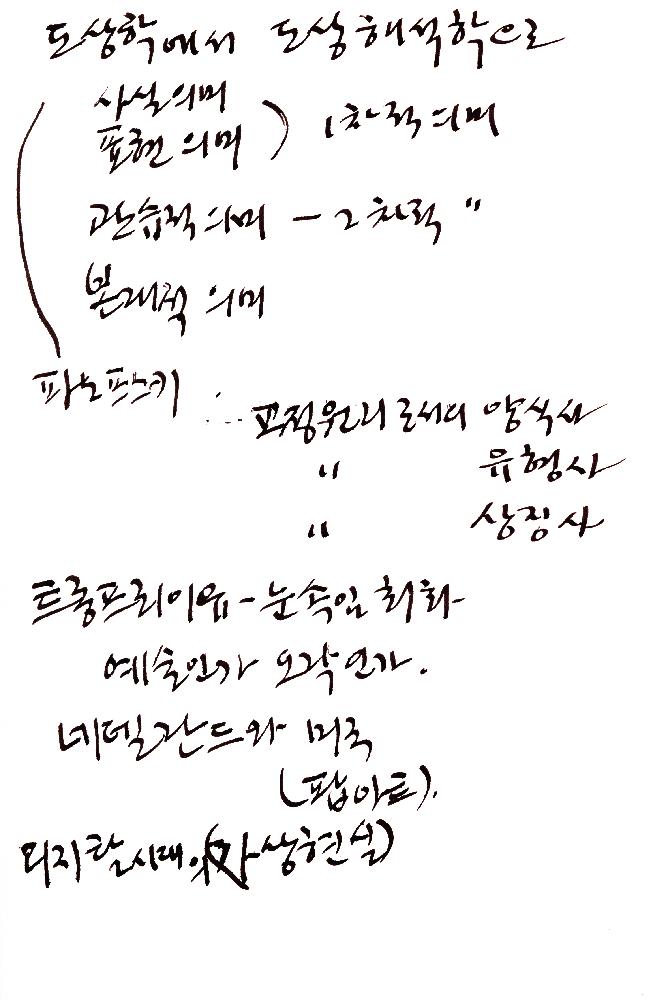 도상학에서 도상해석학으로
사실의미
표현 의미 ) 1차적 의미
관습적 의미 - 2차적 "
본래적 의미
파노프스키
교정원리로서의 양식사
" 유형사
" 상징사
트롱프뢰이유 - 눈속임 회화
예술인가 오락인가.
네델란드와 미국
(팝아트).
디지탈시대의 (가상현실)